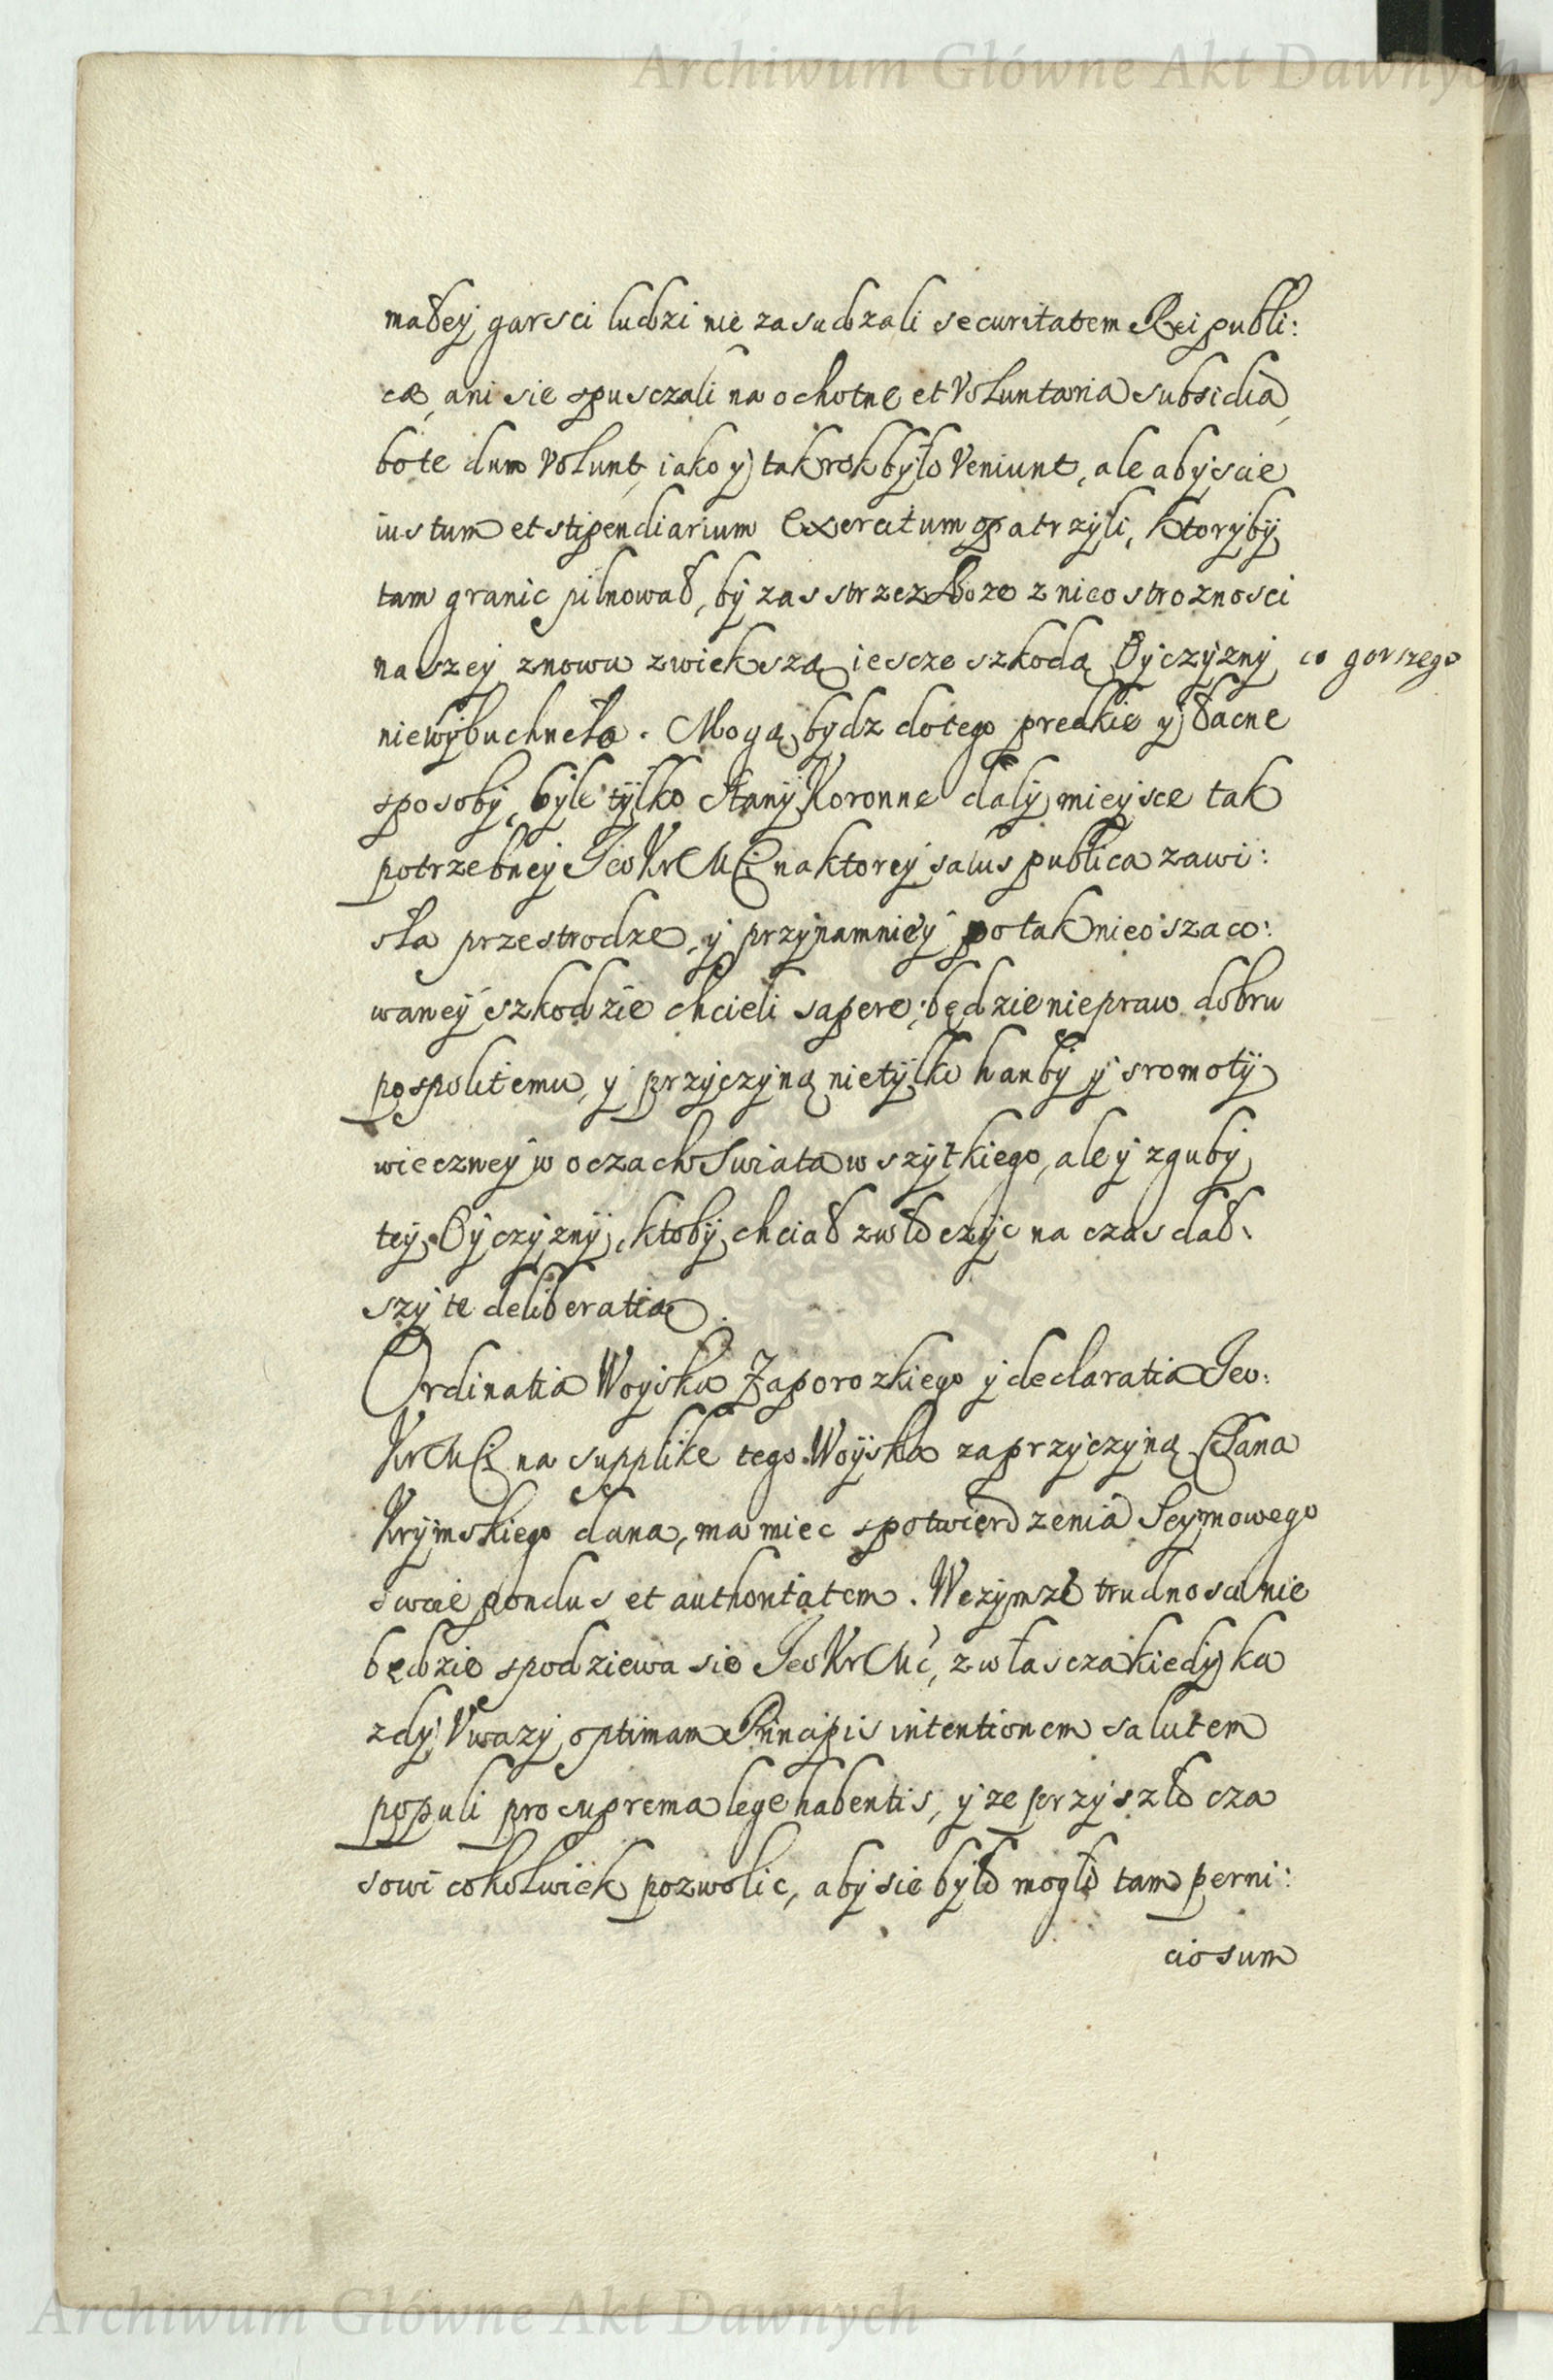 Archiwum Główne Akt Dawnych
małey garsci ludzi nie zasadzali securitatem Rei publi:
cæ, ani sie spusczali na ochotne et Voluntaria subsidia,
bo te dum Volunt, iako y tak rok było Veniunt, ale abyscie
iustum et stipendiarium Exercitum opatrzyli, ktoryby
tam granic pilnował, by zas strzez Boze z nieostroznosci
naszey znowu zwieksza iescze szkoda Oyczyzny co gorszego
niewybuchneło. Moga bydz do tego predkie y łacne
sposoby, byle tylko Stany Koronne dały mieysce tak
potrzebney Jeo Kr Mci na ktorey salus publica zawi:
sła przestrodze, y przynamniey po tak nieoszaco:
waney szkodzie chcieli sapere; będzie niepraw dobru
pospolitemu, y przyczyną nietylko hanby y sromoty
wieczney w oczach Swiata wszytkiego, ale y zguby
tey Oyczyzny, ktoby chciał zwłoczyc na czas dał:
szy te deliberatia.
Ordinatia Woyska Zaporozkiego y declaratia Jeo:
Kr Mci na supplike tego Woyska za przyczyną Chana
Krymskiego dana, ma miec s potwierdzenia Seymowego
swoie pondus et authoritatem. W czym ze trudnosci nie
będzie spodziewa sie Jeo Kr Mć, zwłascza kiedy ka
zdy Uwazy optimam Principis intentionem salutem
populi pro suprema lege habentis, y ze przyszło cza
sowi cokolwiek pozwolic, aby sie było mogło tam perni:
ciosum
Archiwum Główne Akt Dawnych